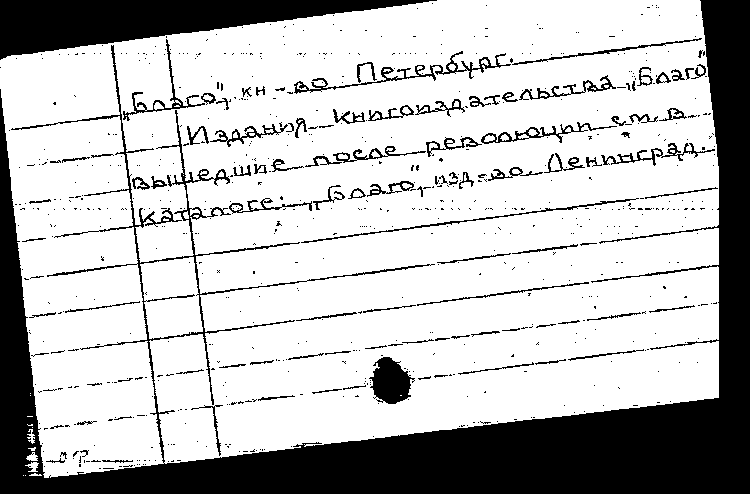 „Благо", кн-во. Петербург.
Издания Книгоиздательства „Благо"
вышедшие после революции см. в
каталоге: „Благо", изд-во. Ленинград.